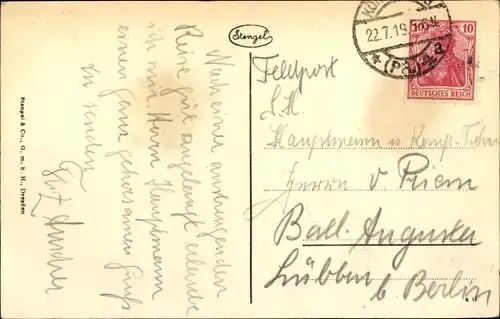 Stengel
Stengel & Co., G. m. b. H., Dresden
Nach einer anstrengenden
Reise gut angelangt erlaube
ich mir Herrn Hauptmann
einen ganz gehorsamen Gruß
zu senden
Fritz
22.7.19. 5-6 N
* (Pr.) 2 a
10 10
DEUTSCHES REICH
Feldpost
S.H.
Hauptmann u. Komp. Führer
Herrn v Priem
Ball. Augusta
Lübben
b Berlin